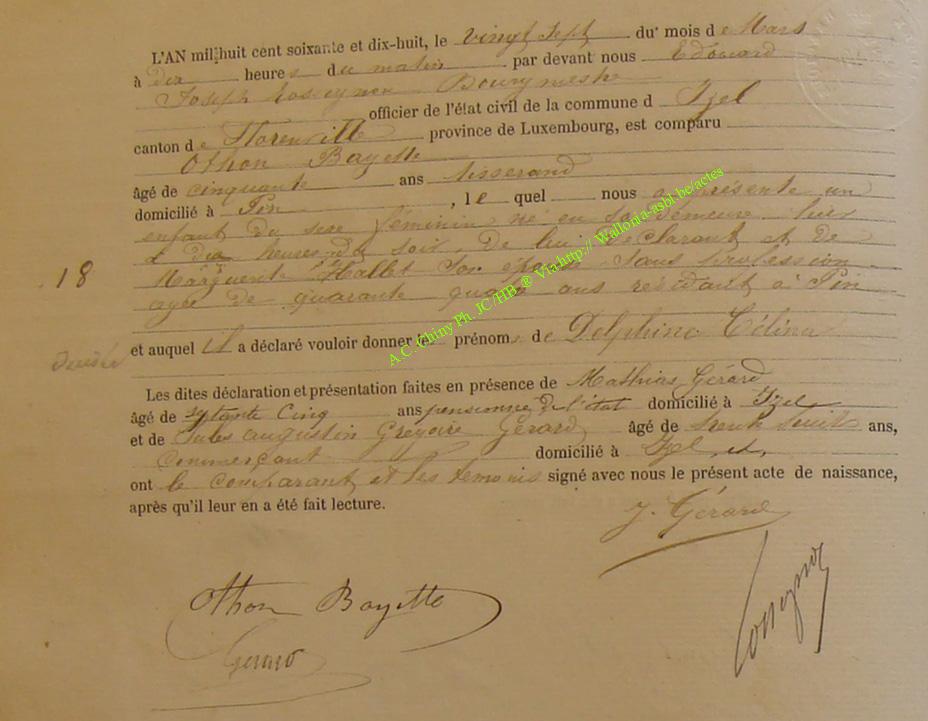 L'AN mil huit cent soixante et dix-huit, le vingt sept du mois de Mars
à dix heures du matin par devant nous Edouard
Joseph
officier de l'état civil de la commune d Izel
canton de Florenville province de Luxembourg, est comparu
Othon Bayette
âgé de cinquante ans tisserand
domicilié à Pin, lequel nous a présenté un
enfant du sexe féminin né en sa demeure hier
à dix heures du soir, de lui déclarant et de
18 Marguerite Hallet son épouse sans profession
agée de quarante quatre ans residant à Pin
et auquel il a déclaré vouloir donner les prénoms de Delphine Célina
Les dites déclaration et présentation faites en présence de Mathias Gérard
âgé de septante cinq ans pensionné de l'état domicilié à Izel
et de Jules Augustin Grégoire Gérard âgé de trente huit ans,
commerçant domicilié à Izel et
ont le comparant et les temoins signé avec nous le présent acte de naissance,
après qu'il leur en a été fait lecture.
J. Gérard
Othon Bayette
Gerard
A.C. Chiny Ph. JC/HB @ Via http:// Wallonia-asbl-be/actes